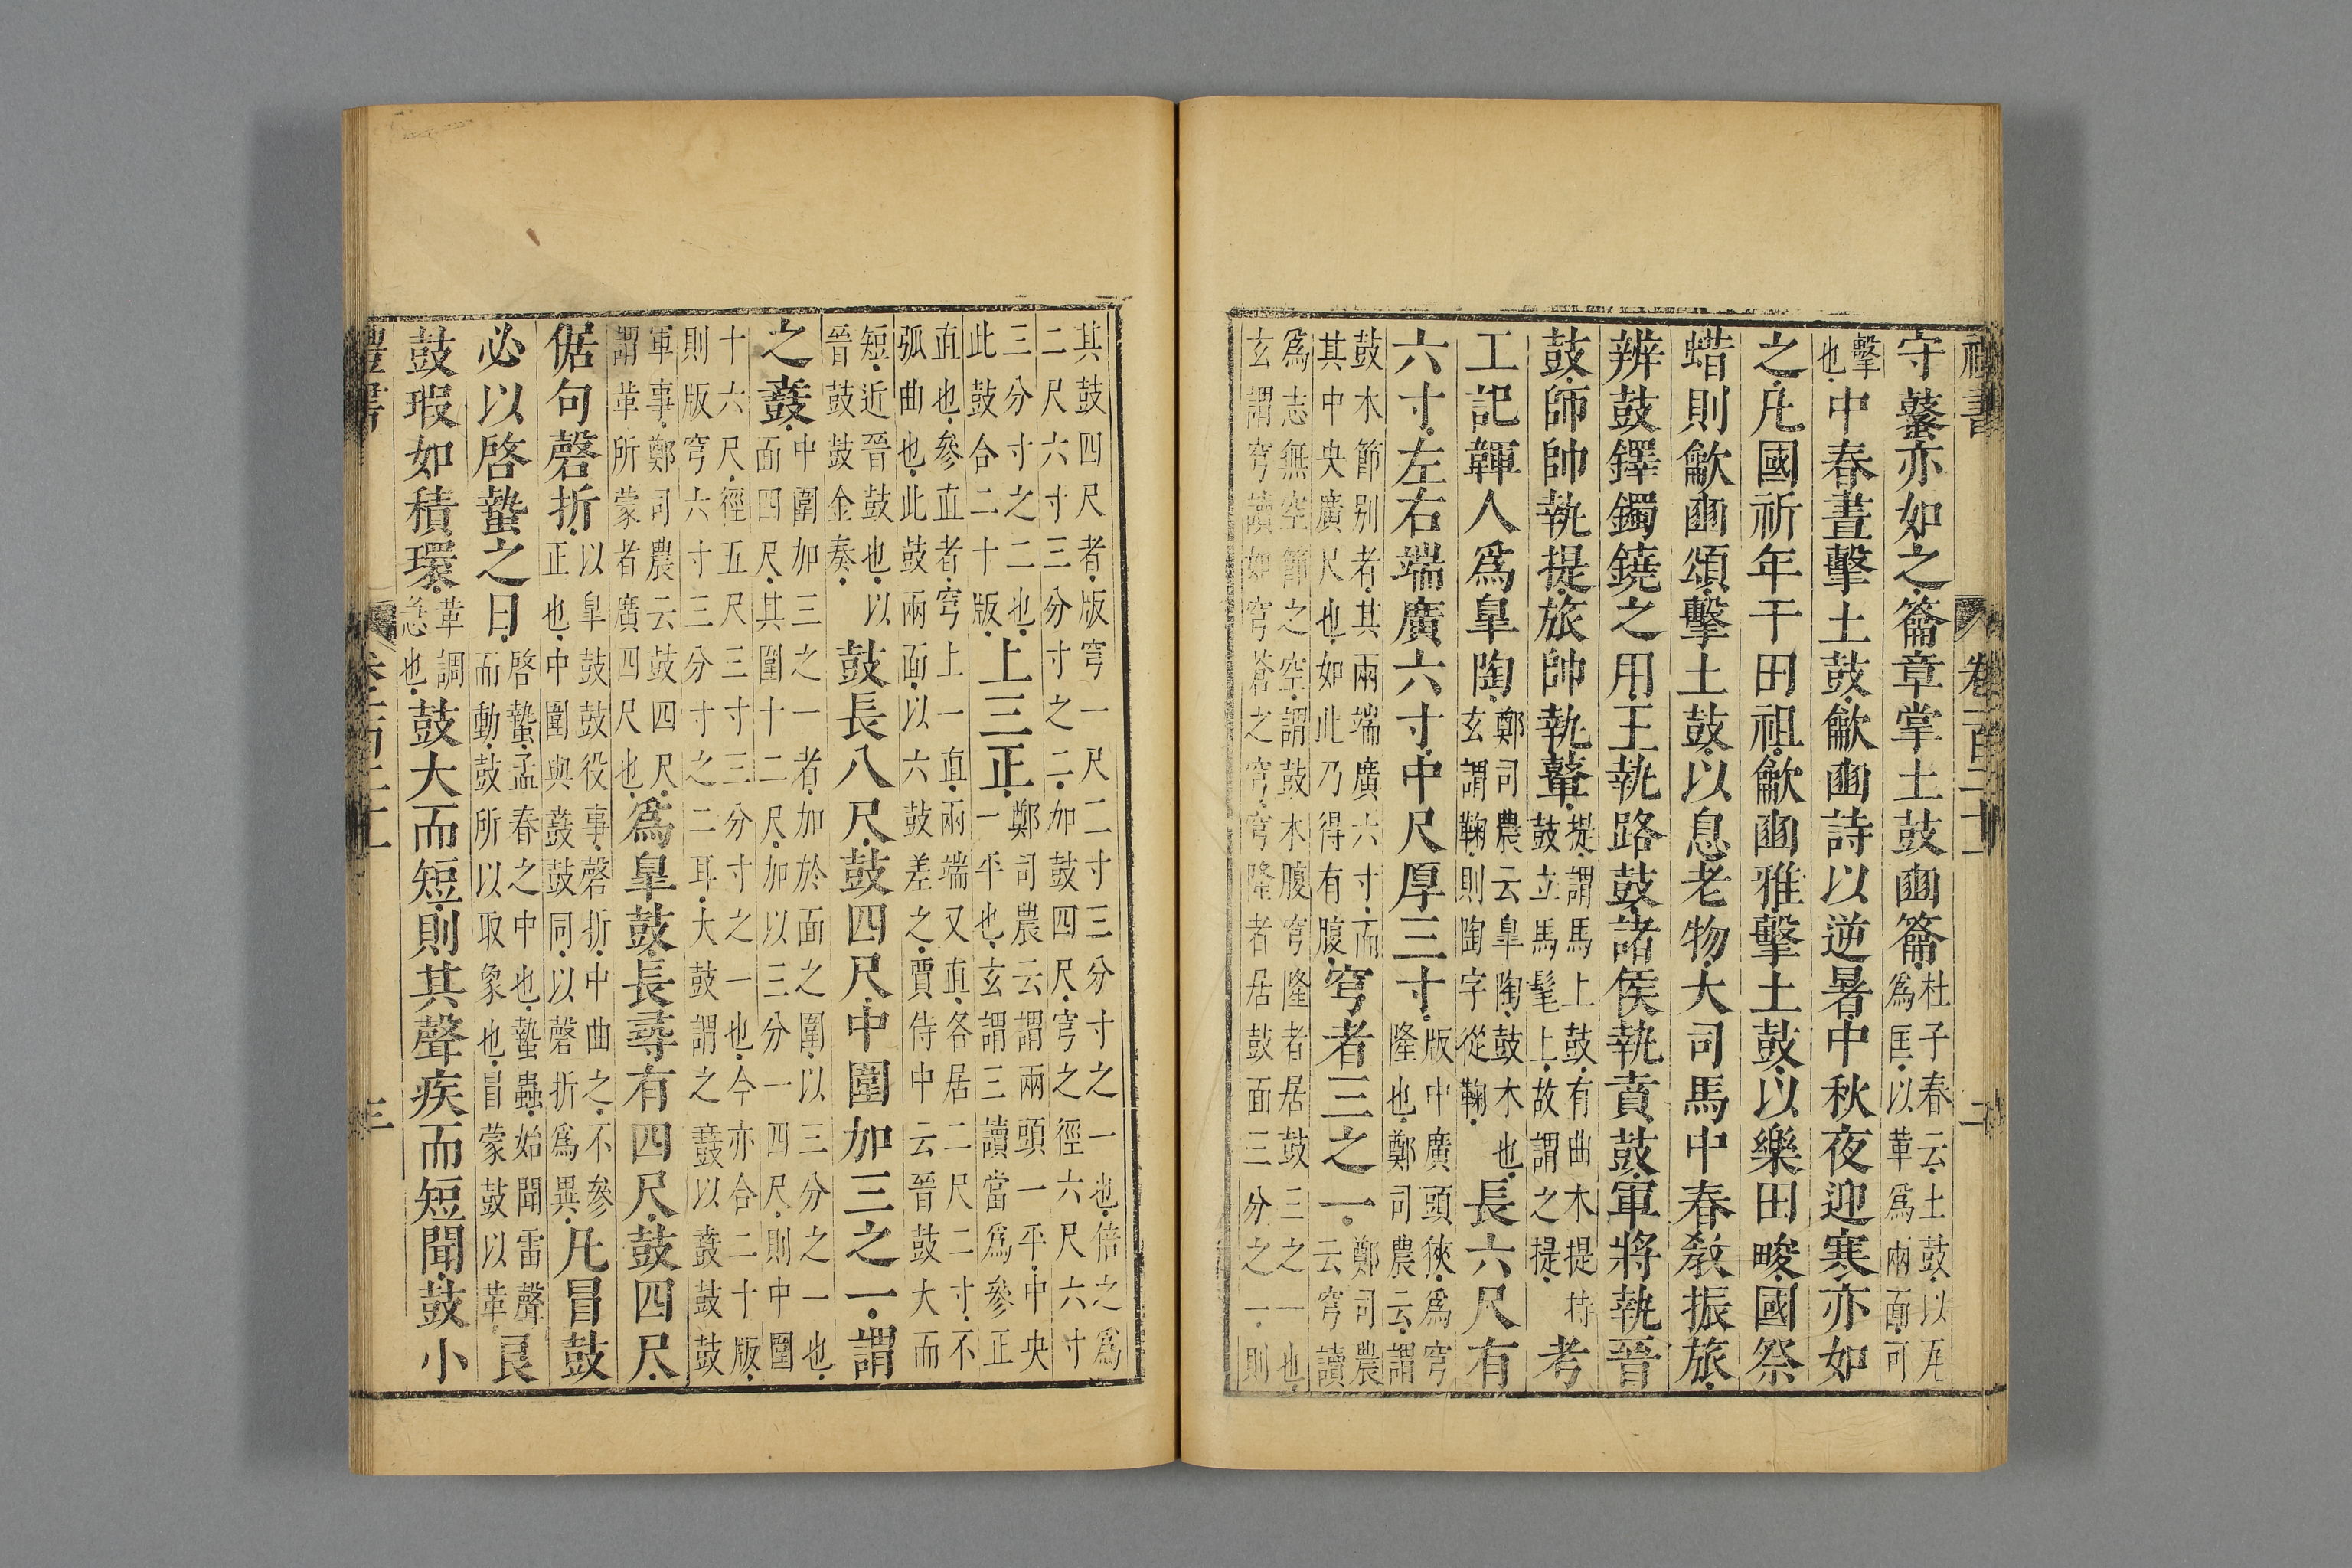 卷一百二十一 二
守鼜亦如之籥章掌土鼓豳籥杜子春云土鼓以瓦爲匡以革爲兩面可
擊也中春晝擊土鼓龡豳詩以逆暑中秋夜迎寒亦如
之凡國祈年于田祖龡豳雅擊土鼓以樂田畯國祭
蜡則龡豳頌擊土鼓以息老物大司馬中春教振旅
辨鼓鐸鐲鐃之用王執路鼓諸侯執賁鼓軍將執晉
鼓師帥執提旅帥執鼙提謂馬上鼓有曲木提持鼓立馬髦上故謂之提考
工記韗人爲皐陶鄭司農云皐陶鼓木也玄謂鞠則陶字從鞠長六尺有
六寸左右端廣六寸中尺厚三寸版中廣頭狹爲穹隆也鄭司農云謂
鼓木節別者其兩端廣六寸而其中央廣尺也如此乃得有腹穹者三之一鄭司農云穹讀
爲志無空節之空謂鼓木腹穹隆者居鼓三之一也玄謂穹讀如穹蒼之穹穹隆者居鼓面三分之一則
其鼓四尺者版穹一尺二寸三分寸之一也倍之爲二尺六寸三分寸之二加鼓四尺穹之徑六尺六寸
三分寸之二也此鼓合二十版上三正鄭司農云謂兩頭一平中央一平也玄謂三讀當爲參正
直也參直者穹上一直兩端又直各居二尺二寸不弧曲也此鼓兩面以六鼓差之賈侍中云晉鼓大而
短近晉鼓也以晉鼓鼓金奏鼓長八尺鼓四尺中圍加三之一謂
之鼖中圍加三之一者加於面之圍以三分之一也面四尺其圍十二尺加以三分一四尺則中圍
十六尺徑五尺三寸三分寸之一也今亦合二十版則版穹六寸三分寸之二耳大鼓謂之鼖以鼖鼓鼓
軍事鄭司農云鼓四尺謂革所蒙者廣四尺也爲皐鼓長尋有四尺鼓四尺
倨句磬折以皐鼓鼓役事磬折中曲之不參正也中圍與鼖鼓同以磬折爲異凡冒鼓
必以啓蟄之日啓蟄孟春之中也蟄蟲始聞雷聲而動鼓所以取象也冒蒙鼓以革良
鼓瑕如積環革調急也鼓大而短則其聲疾而短聞鼓小
禮書 三